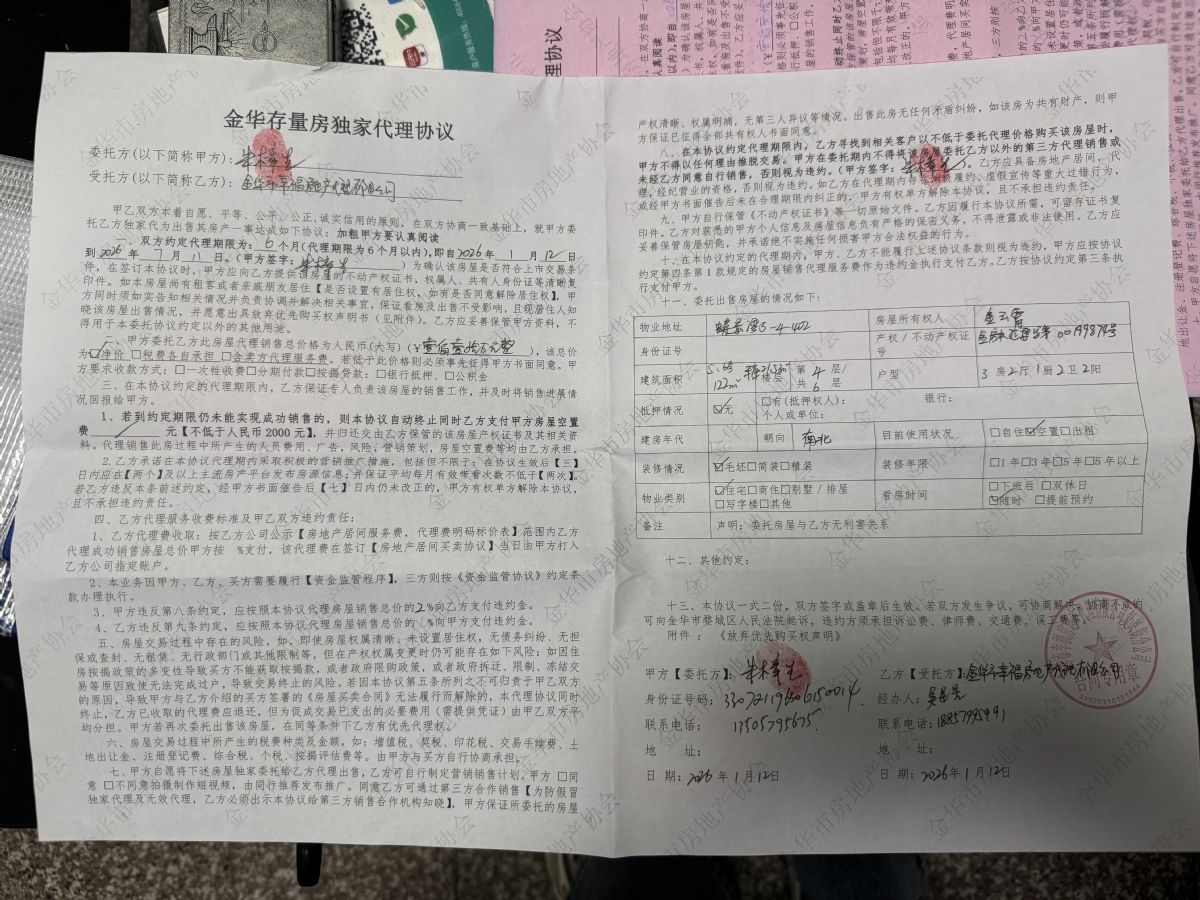 金华存量房独家代理协议
委托方(以下简称甲方):
受托方(以下简称乙方):金华市幸福房地产代理有限公司
甲乙双方本着自愿、平等、公平、公正,诚实信用的原则,在双方协商一致基础上,就甲方委
托乙方独家代为出售其房产一事达成如下协议:加粗甲方要认真阅读
双方约定代理期限为:6个月(代理期限为6个月以内),即自2026年1月12日
到2026年7月11日。(甲方签字: )为确认该房屋是否符合上市交易条
件,在签订本协议时,甲方应向乙方提供该房屋的不动产权证书,权属人、共有人身份证等清晰复
印件。如本房屋尚有租客或者亲戚朋友居住【是否设置有居住权,如有是否同意解除居住权】,甲
方同时须如实告知相关情况并负责协调并解决相关事宜,保证看房及出售不受影响,且现居住人知
晓该房屋出售情况,并愿意出具放弃优先购买权声明书(见附件)。乙方应妥善保管甲方资料,不
得用于本委托协议约定以外的其他用途。
甲方委托乙方此房屋代理销售总价格为人民币(大写)(¥ 万元整),该总价
为☑净价 □税费各自承担 □含卖方代理服务费。若低于此价格则必须事先征得甲方书面同意。甲
方要求收款方式:□一次性收费□分期付款□按揭贷款:□银行抵押、□公积金
三、在本协议约定的代理期限内,乙方保证专人负责该房屋的销售工作,并及时将销售进展情
况回报给甲方。
1、若到约定期限仍未能实现成功销售的,则本协议自动终止同时乙方支付甲方房屋空置
费 / 元【不低于人民币2000元】,并归还交由乙方保管的该房屋产权证书及其相关资
料。代理销售此房过程中所产生的人员费用、广告,风险,营销策划,房屋空置费等均由乙方承担。
2.乙方承诺在本协议代理期内采取积极的营销推广措施,包括但不限于:在协议生效后【三】
日内应在【两个】及以上主流房产平台发布房源信息;并保证平均每月有效带看次数不低于【两次】。
若乙方违反本条前述约定,经甲方书面催告后【七】日内仍未改正的,甲方有权单方解除本协议,
且不承担违约责任。
四、乙方代理服务收费标准及甲乙双方违约责任:
1、乙方代理费收取:按乙方公司公示【房地产居间服务费,代理费明码标价表】范围内乙方
代理成功销售房屋总价甲方按 %支付,该代理费在签订【房地产居间买卖协议】当日由甲方打入
乙方公司指定账户。
2、本业务因甲方、乙方、买方需要履行【资金监管程序】,三方则按《资金监管协议》约定条
款办理执行。
3、甲方违反第八条约定,应按照本协议代理房屋销售总价的2%向乙方支付违约金。
4、乙方违反第九条约定,应按照本协议代理房屋销售总价的 %向甲方支付违约金。
五、房屋交易过程中存在的风险,如、即使房屋权属清晰、未设置居住权,无债务纠纷、无担
保或查封、无租赁、无行政部门或其他限制等,但在产权权属变更时仍可能存在如下风险:如因住
房按揭政策的多变性导致买方不能获取按揭款,或者政府限购政策,或者政府拆迁、限制、冻结交
易等原因致使无法完成过户,导致交易终止的风险。若因本协议第五条所列之不可归责于甲乙双方
的原因,导致甲方与乙方介绍的买方签署的《房屋买卖合同》无法履行而解除的,本代理协议同时
终止,乙方已收取的代理费应退还,但为促成交易已支出的必要费用(需提供凭证)由甲乙双方平
均分担。甲方若再次委托出售该房屋,在同等条件下乙方有优先代理权。
六、房屋交易过程中所产生的税费种类及金额,如:增值税,契税、印花税,交易手续费,土
地出让金、注册登记费、综合税、个税、按揭评估费等。由甲方与买方自行协商承担。
七、甲方自愿将下述房屋独家委托给乙方代理出售,乙方可自行制定营销销售计划。甲方 □同
意 □不同意拍摄制作短视频,由同行推荐发布推广。同意乙方可通过第三方合作销售【为防假冒
独家代理及无效代理,乙方必须出示本协议给第三方销售合作机构知晓】,甲方保证所委托的房屋
产权清晰、权属明确,无第三人异议等情况。出售此房无任何矛盾纠纷,如该房为共有财产,则甲
方保证已征得全部共有权人书面同意。
八、在本协议约定代理期限内,乙方寻找到相关客户以不低于委托代理价格购买该房屋时,
甲方不得以任何理由推脱交易。甲方在委托期内不得将该房屋委托乙方以外的第三方代理销售或
未经乙方同意自行销售,否则视为违约。(甲方签字: )。乙方应具备房地产居间,代
理,经纪营业的资格,否则视为违约。如乙方在代理期内存在 履约、虚假宣传等重大过错行为,
或经甲方书面催告后未在合理期限内纠正的,甲方有权单方解除本协议,且不承担违约责任。
九、甲方自行保管《不动产权证书》等一切原始文件。乙方因履行本协议所需,可留存证书复
印件。乙方对获悉的甲方个人信息及房屋信息负有严格的保密义务,不得泄露或非法使用。乙方应
妥善保管房屋钥匙,并承诺绝不实施任何损害甲方合法权益的行为。
十、在本协议约定的代理期内,甲方、乙方不能履行上述协议条款则视为违约,甲方应按协议
约定第四条第1款规定的房屋销售代理服务费作为违约金执行支付乙方。乙方按协议约定第三条执
行支付甲方。
十一、委托出售房屋的情况如下:
物业地址 5-4-402 房屋所有权人
身份证号 产权/不动产权证号 00199879号
建筑面积 122m² 楼层 第4层/共6层 户型 3房2厅1厨2卫2阳
抵押情况 ☑无 □有(抵押权人): 银行:
个人或单位:
建房年代 朝向 南北 目前使用状况 □自住☑空置□出租
装修情况 ☑毛坯□简装□精装 装修年限 □1年□3年□5年□5年以上
物业类别 ☑住宅□商住□别墅/排屋 □写字楼□其他 看房时间 □下班后 □双休日 ☑随时 □提前预约
备注 声明:委托房屋与乙方无利害关系
十二、其他约定:
十三、本协议一式二份,双方签字或盖章后生效。若双方发生争议,可协商解决,协商不成的
可向金华市婺城区人民法院起诉,违约方须承担诉讼费、律师费、交通费、误工费等。
附件:《放弃优先购买权声明》
甲方【委托方】: 乙方【受托方】:金华市幸福房地产代理有限公司
身份证号码:330721196306150014 经办人:
联系电话:13505795675 联系电话:18857995991
地 址: 地 址:
日 期:2026年1月12日 日 期:2026年1月12日
合同专用章
金华市房地产业协会